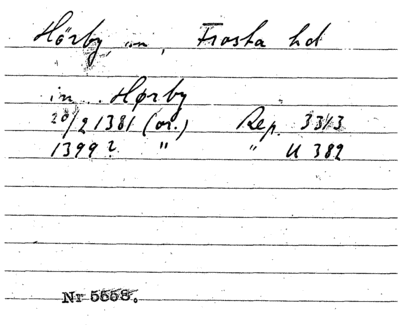 Hörby, sn, Frosta hd
in Hørby
20/2 1381 (or.) Rep. 3313
1399? " " U 382
Nr 5558.